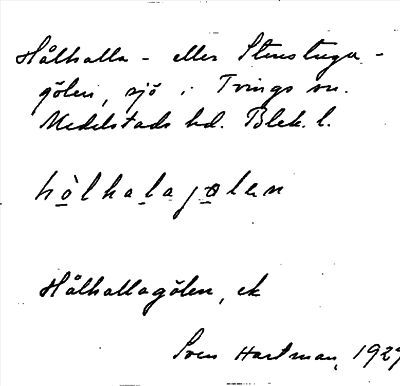 Hålhalla- eller Stenstuga-
gölen, sjö i Tvings sn.
Medelstads hd. Blek. l.
hòlhalagølen
Hålhallagölen, ek
Sven Hartman, 1927